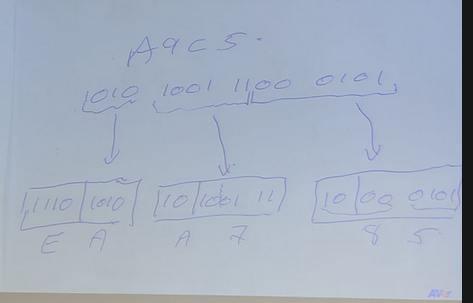 A9C5.
1010 1001 1100 0101
1110 1010 10 1001 11 10 00 0101
E A A 7 8 5
AVer